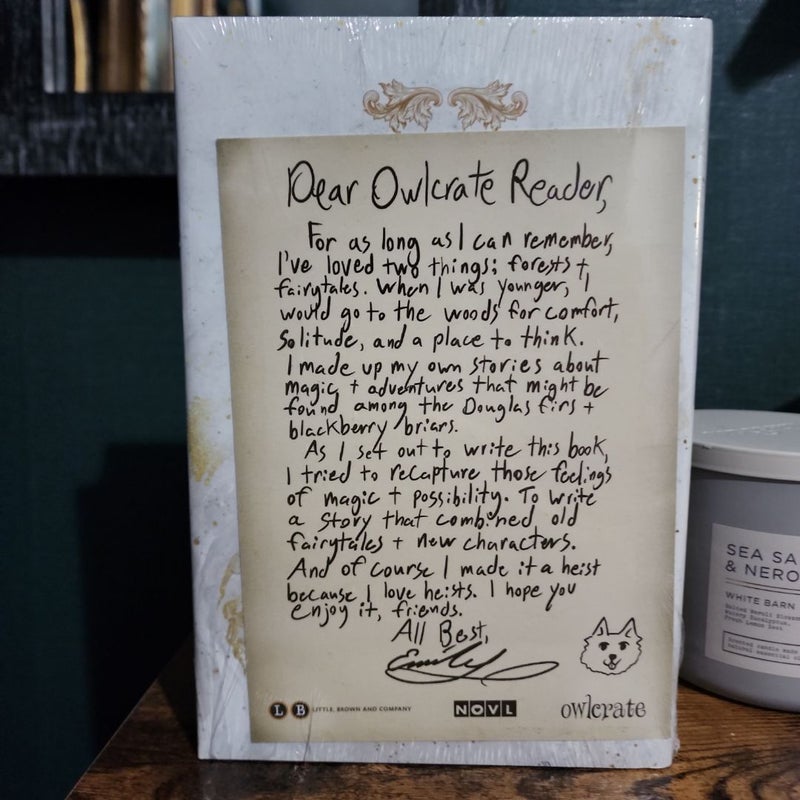 Dear Owlcrate Reader,
For as long as I can remember,
I've loved two things: forests +
fairytales. When I was younger, I
would go to the woods for comfort,
solitude, and a place to think.
I made up my own stories about
magic + adventures that might be
found among the Douglas firs +
blackberry briars.
As I set out to write this book,
I tried to recapture those feelings
of magic + possibility. To write
a story that combined old
fairytales + new characters.
And of course I made it a heist
because I love heists. I hope you
enjoy it, friends.
All Best,
Emily
L B LITTLE, BROWN AND COMPANY
NOVL
owlcrate
SEA SA
& NERO
WHITE BARN